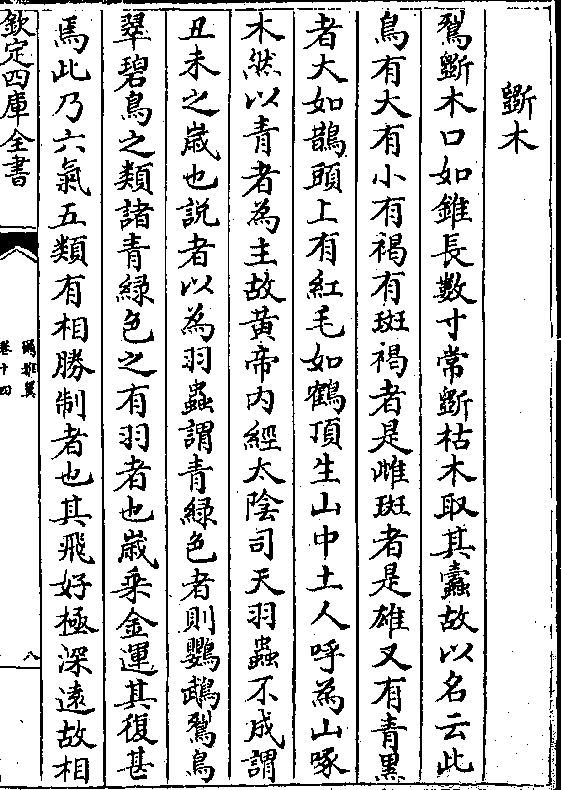 斲木
鴷斲木口如錐長數寸常斲枯木取其蠹故以名云此
鳥有大有小有褐有斑褐者是雌斑者是雄又有青黒
者大如鵲頭上有紅毛如鶴頂生山中土人呼為山啄
木然以青者為主故黄帝内經太陰司天羽蟲不成謂
丑未之嵗也説者以為羽蟲謂青緑色者則鸚鵡鴷鳥
翠碧鳥之類諸青緑色之有羽者也嵗乗金運其復甚
焉此乃六氣五類有相勝制者也其飛好極深逺故相
欽定四庫全書
爾雅翼
卷十四
八